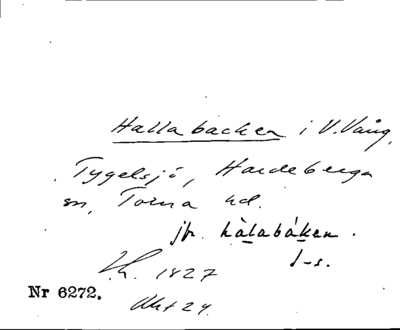 Hallabacken i V. Vång,
Tygelsjö, Hardeberga
sn, Torna hd.
jfr. hàlabákan.
J-s.
1827
Nr 6272.
Akt 24.